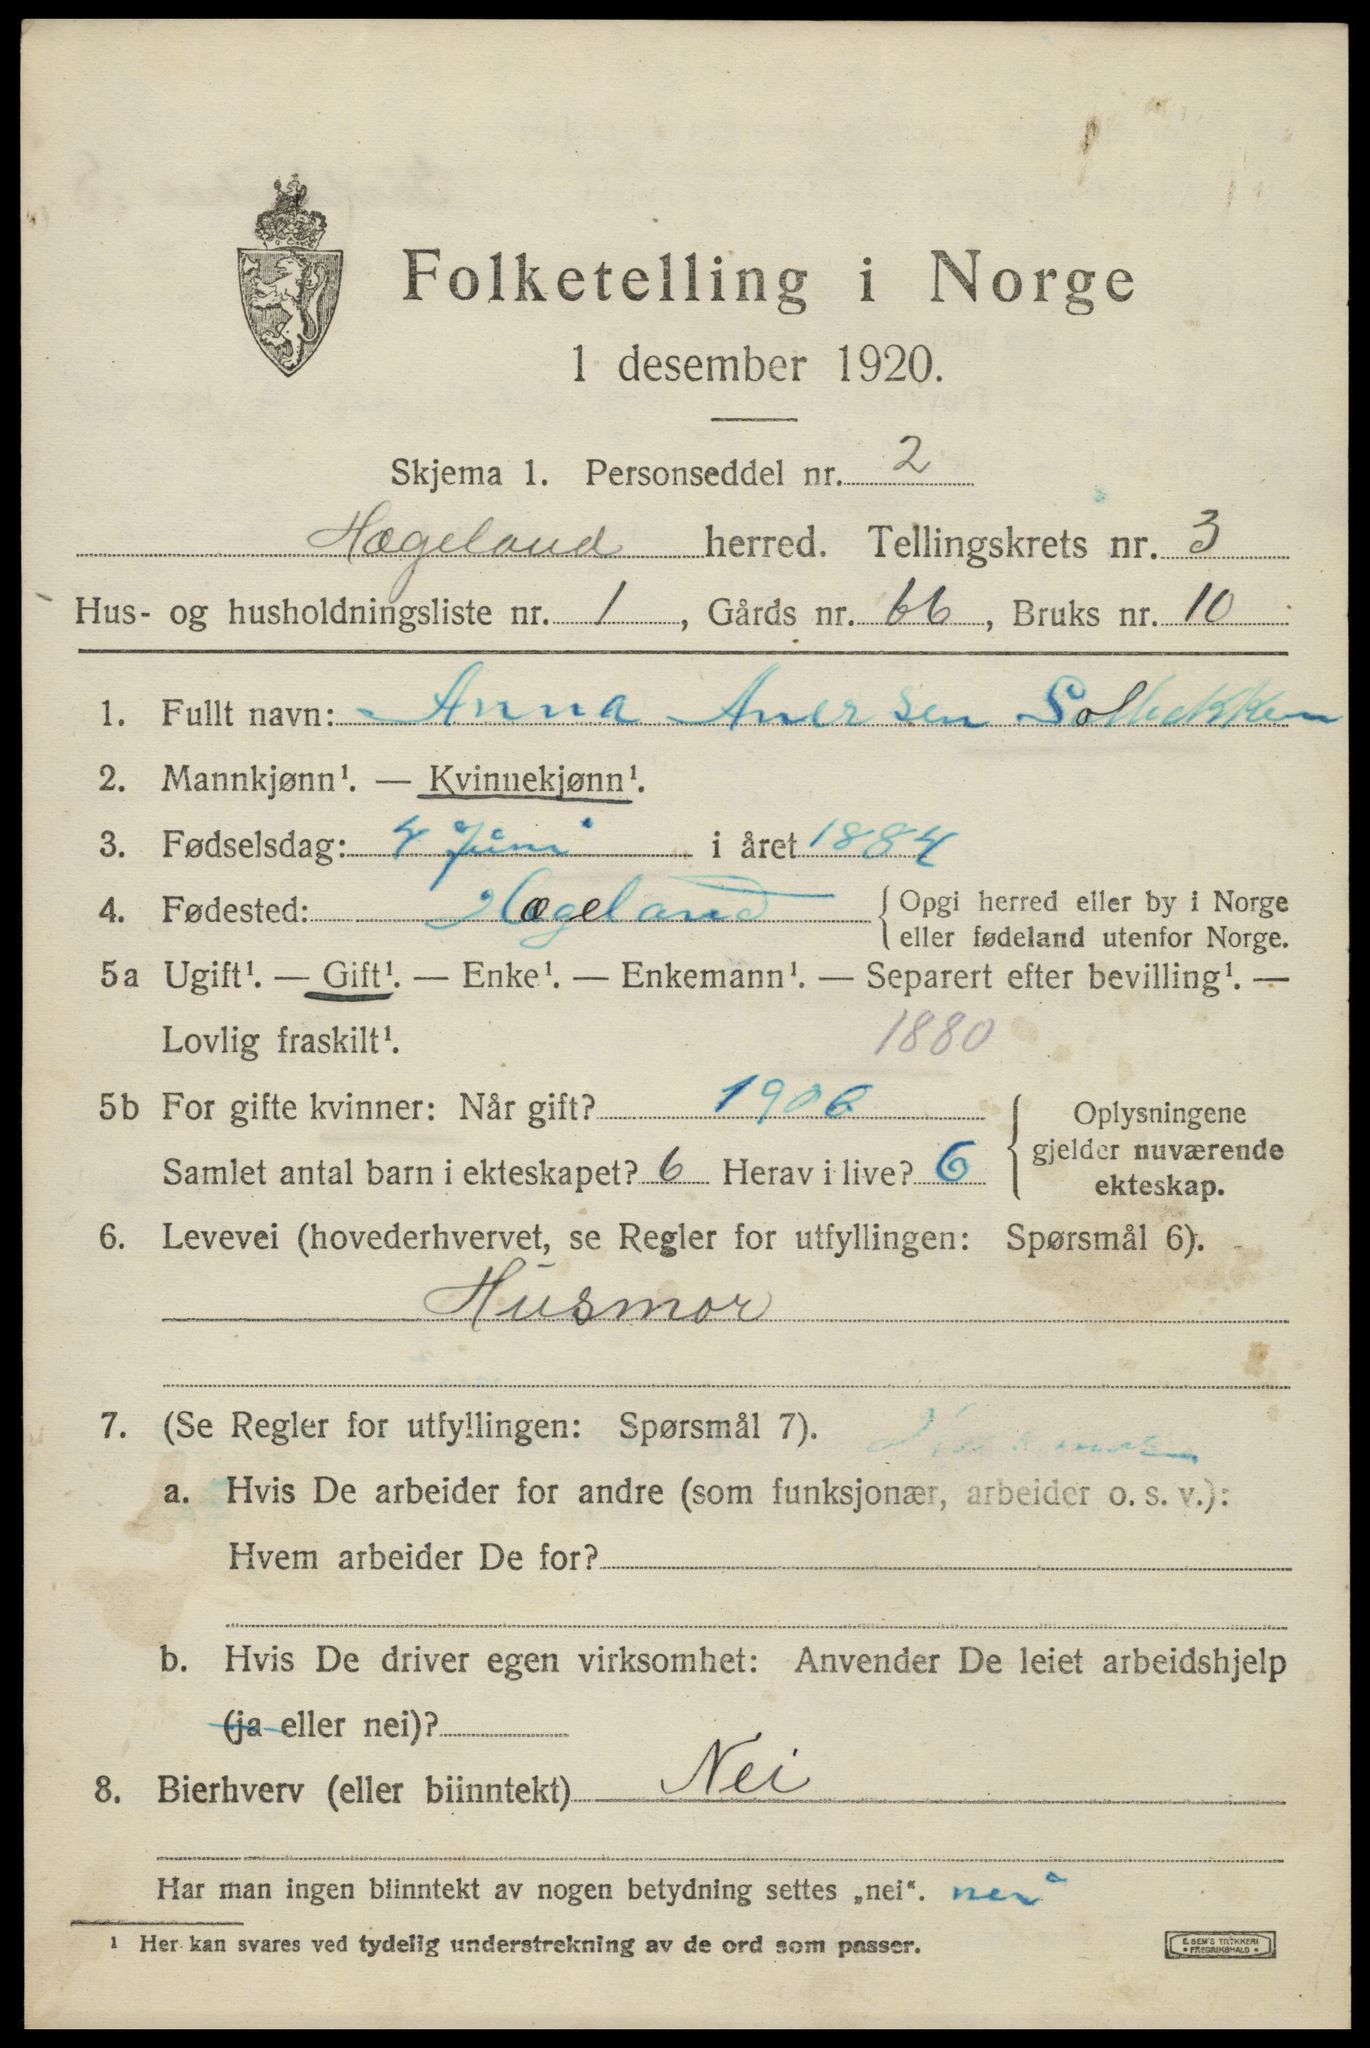 Folketelling i Norge
1 desember 1920.
Skjema 1. Personseddel nr. 2
Hægeland herred. Tellingskrets nr. 3
Hus- og husholdningsliste nr. 1, Gårds nr. 66, Bruks nr. 10
1. Fullt navn: Anna Anersen Solbekken
2. Mannkjønn¹. — Kvinnekjønn¹.
3. Fødselsdag: 4 Juni i året 1884
4. Fødested: Hægeland { Opgi herred eller by i Norge
eller fødeland utenfor Norge.
5a Ugift¹. — Gift¹. — Enke¹. — Enkemann¹. — Separert efter bevilling¹. —
Lovlig fraskilt¹. 1880
5b For gifte kvinner: Når gift? 1906
Samlet antal barn i ekteskapet? 6 Herav i live? 6
{ Oplysningene
gjelder nuværende
ekteskap.
6. Levevei (hovederhvervet, se Regler for utfyllingen: Spørsmål 6).
Husmor
7. (Se Regler for utfyllingen: Spørsmål 7).
a. Hvis De arbeider for andre (som funksjonær, arbeider o. s. v.):
Hvem arbeider De for?
b. Hvis De driver egen virksomhet: Anvender De leiet arbeidshjelp
(ja eller nei)?
8. Bierhverv (eller biinntekt) Nei
Har man ingen biinntekt av nogen betydning settes „nei“. nei
¹ Her kan svares ved tydelig understrekning av de ord som passer.
E. SEM'S TRYKKERI
FREDRIKSHALD